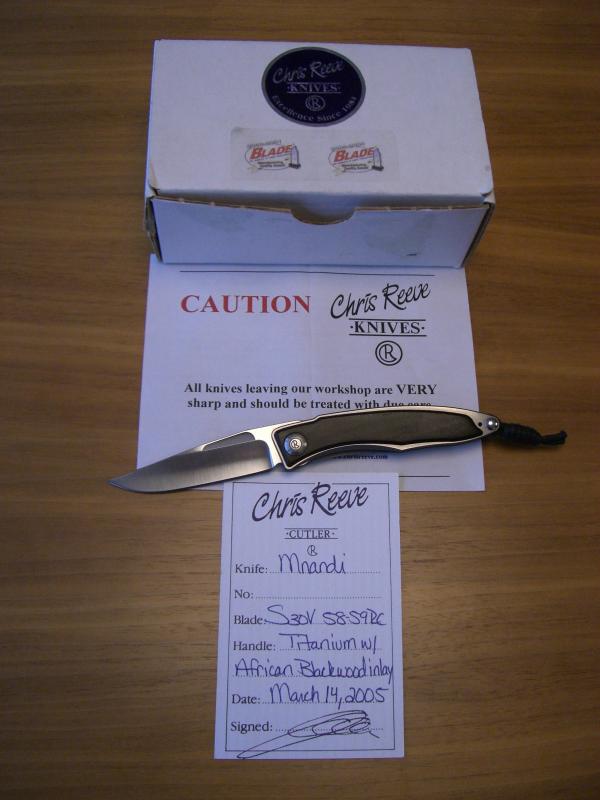 Chris Reeve
·KNIVES·
R
Excellence Since 1984
BLADE
BLADE
CAUTION
Chris Reeve
·KNIVES·
R
All knives leaving our workshop are VERY
sharp and should be treated with due care
R
Chris Reeve
·CUTLER·
R
Knife: Mnandi
No:
Blade: S30V 58-59RC
Handle: Titanium w/
African Blackwood inlay
Date: March 14, 2005
Signed: